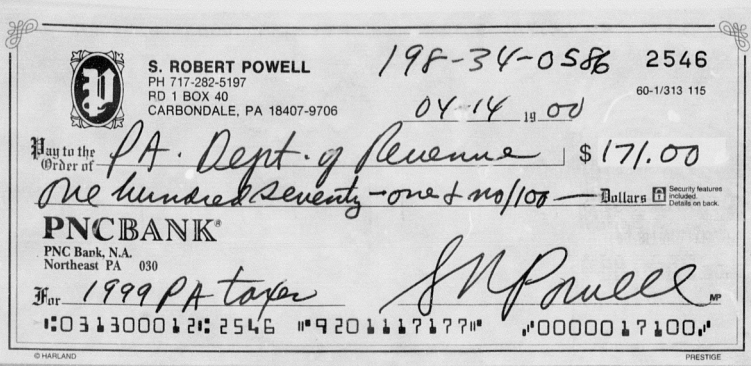 198-34-0586 2546
S. ROBERT POWELL
PH 717-282-5197
RD 1 BOX 40
CARBONDALE, PA 18407-9706
60-1/313 115
04-14 19 00
Pay to the
Order of PA. Dept. of Revenue $ 171.00
One hundred seventy-one & no/100 Dollars
Security features
included.
Details on back.
PNCBANK®
PNC Bank, N.A.
Northeast PA 030
For 1999 PA taxes S R Powell MP
⑆031300012⑆ 2546 ⑈9201117177⑈ ⑈0000017100⑈
© HARLAND PRESTIGE